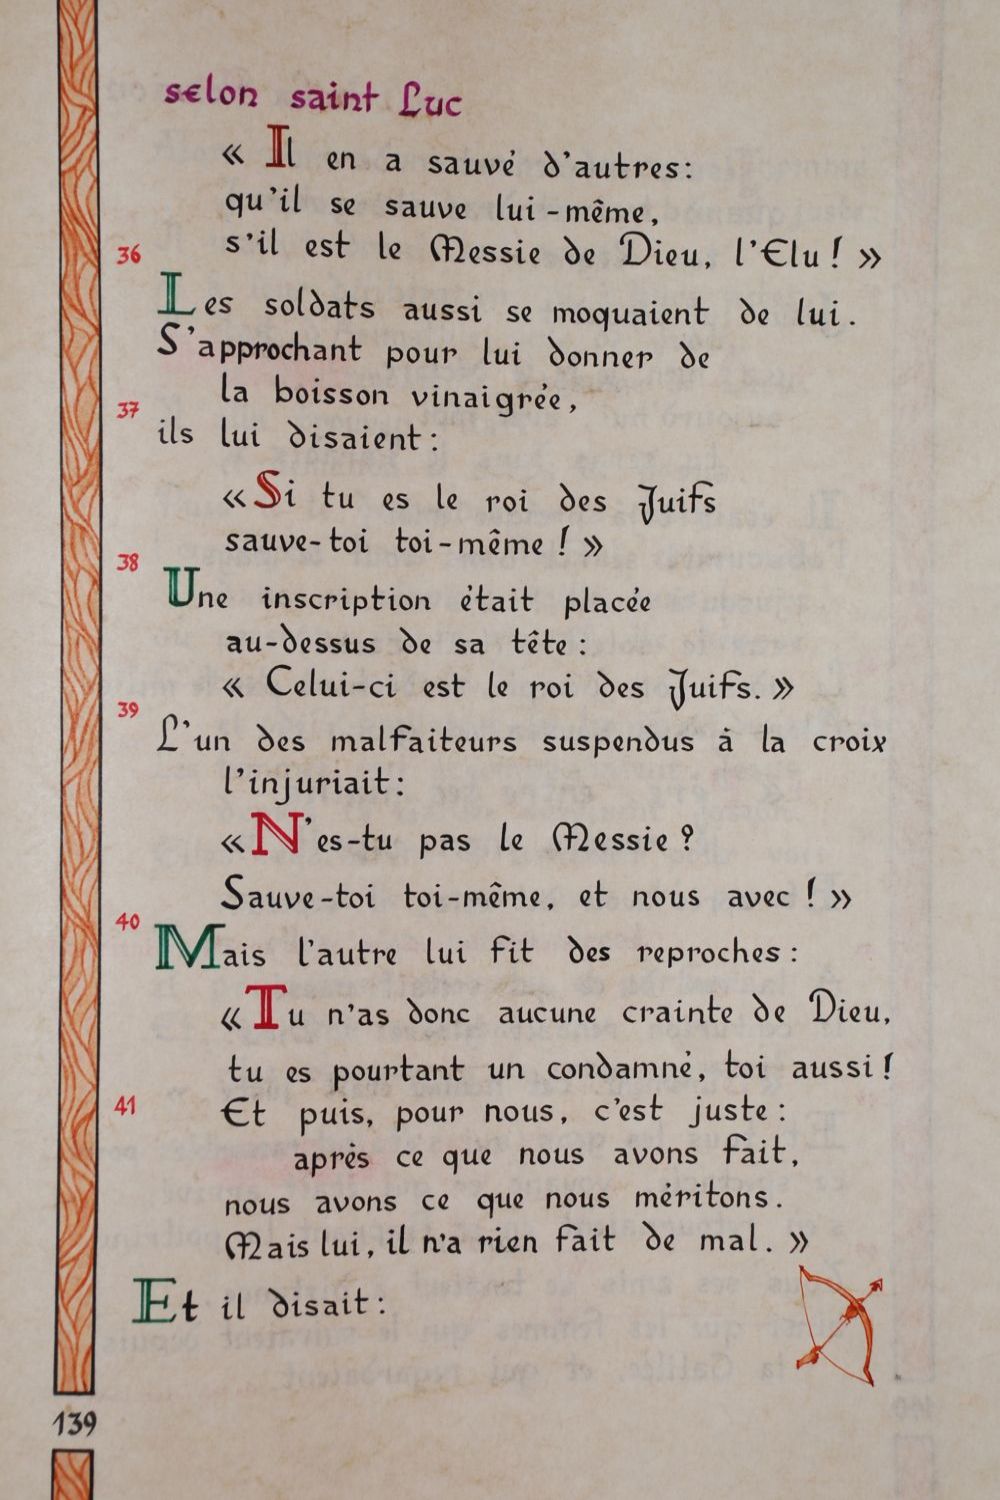 selon saint Luc
« Il en a sauvé d'autres:
qu'il se sauve lui-même,
s'il est le Messie de Dieu, l'Elu ! »
36
Les soldats aussi se moquaient de lui.
S'approchant pour lui donner de
la boisson vinaigrée,
37
ils lui disaient :
« Si tu es le roi des Juifs
sauve-toi toi-même ! »
38
Une inscription était placée
au-dessus de sa tête :
« Celui-ci est le roi des Juifs. »
39
L'un des malfaiteurs suspendus à la croix
l'injuriait :
« N'es-tu pas le Messie ?
Sauve-toi toi-même, et nous avec ! »
40
Mais l'autre lui fit des reproches :
« Tu n'as donc aucune crainte de Dieu,
tu es pourtant un condamné, toi aussi !
41
Et puis, pour nous, c'est juste :
après ce que nous avons fait,
nous avons ce que nous méritons.
Mais lui, il n'a rien fait de mal. »
Et il disait :
139